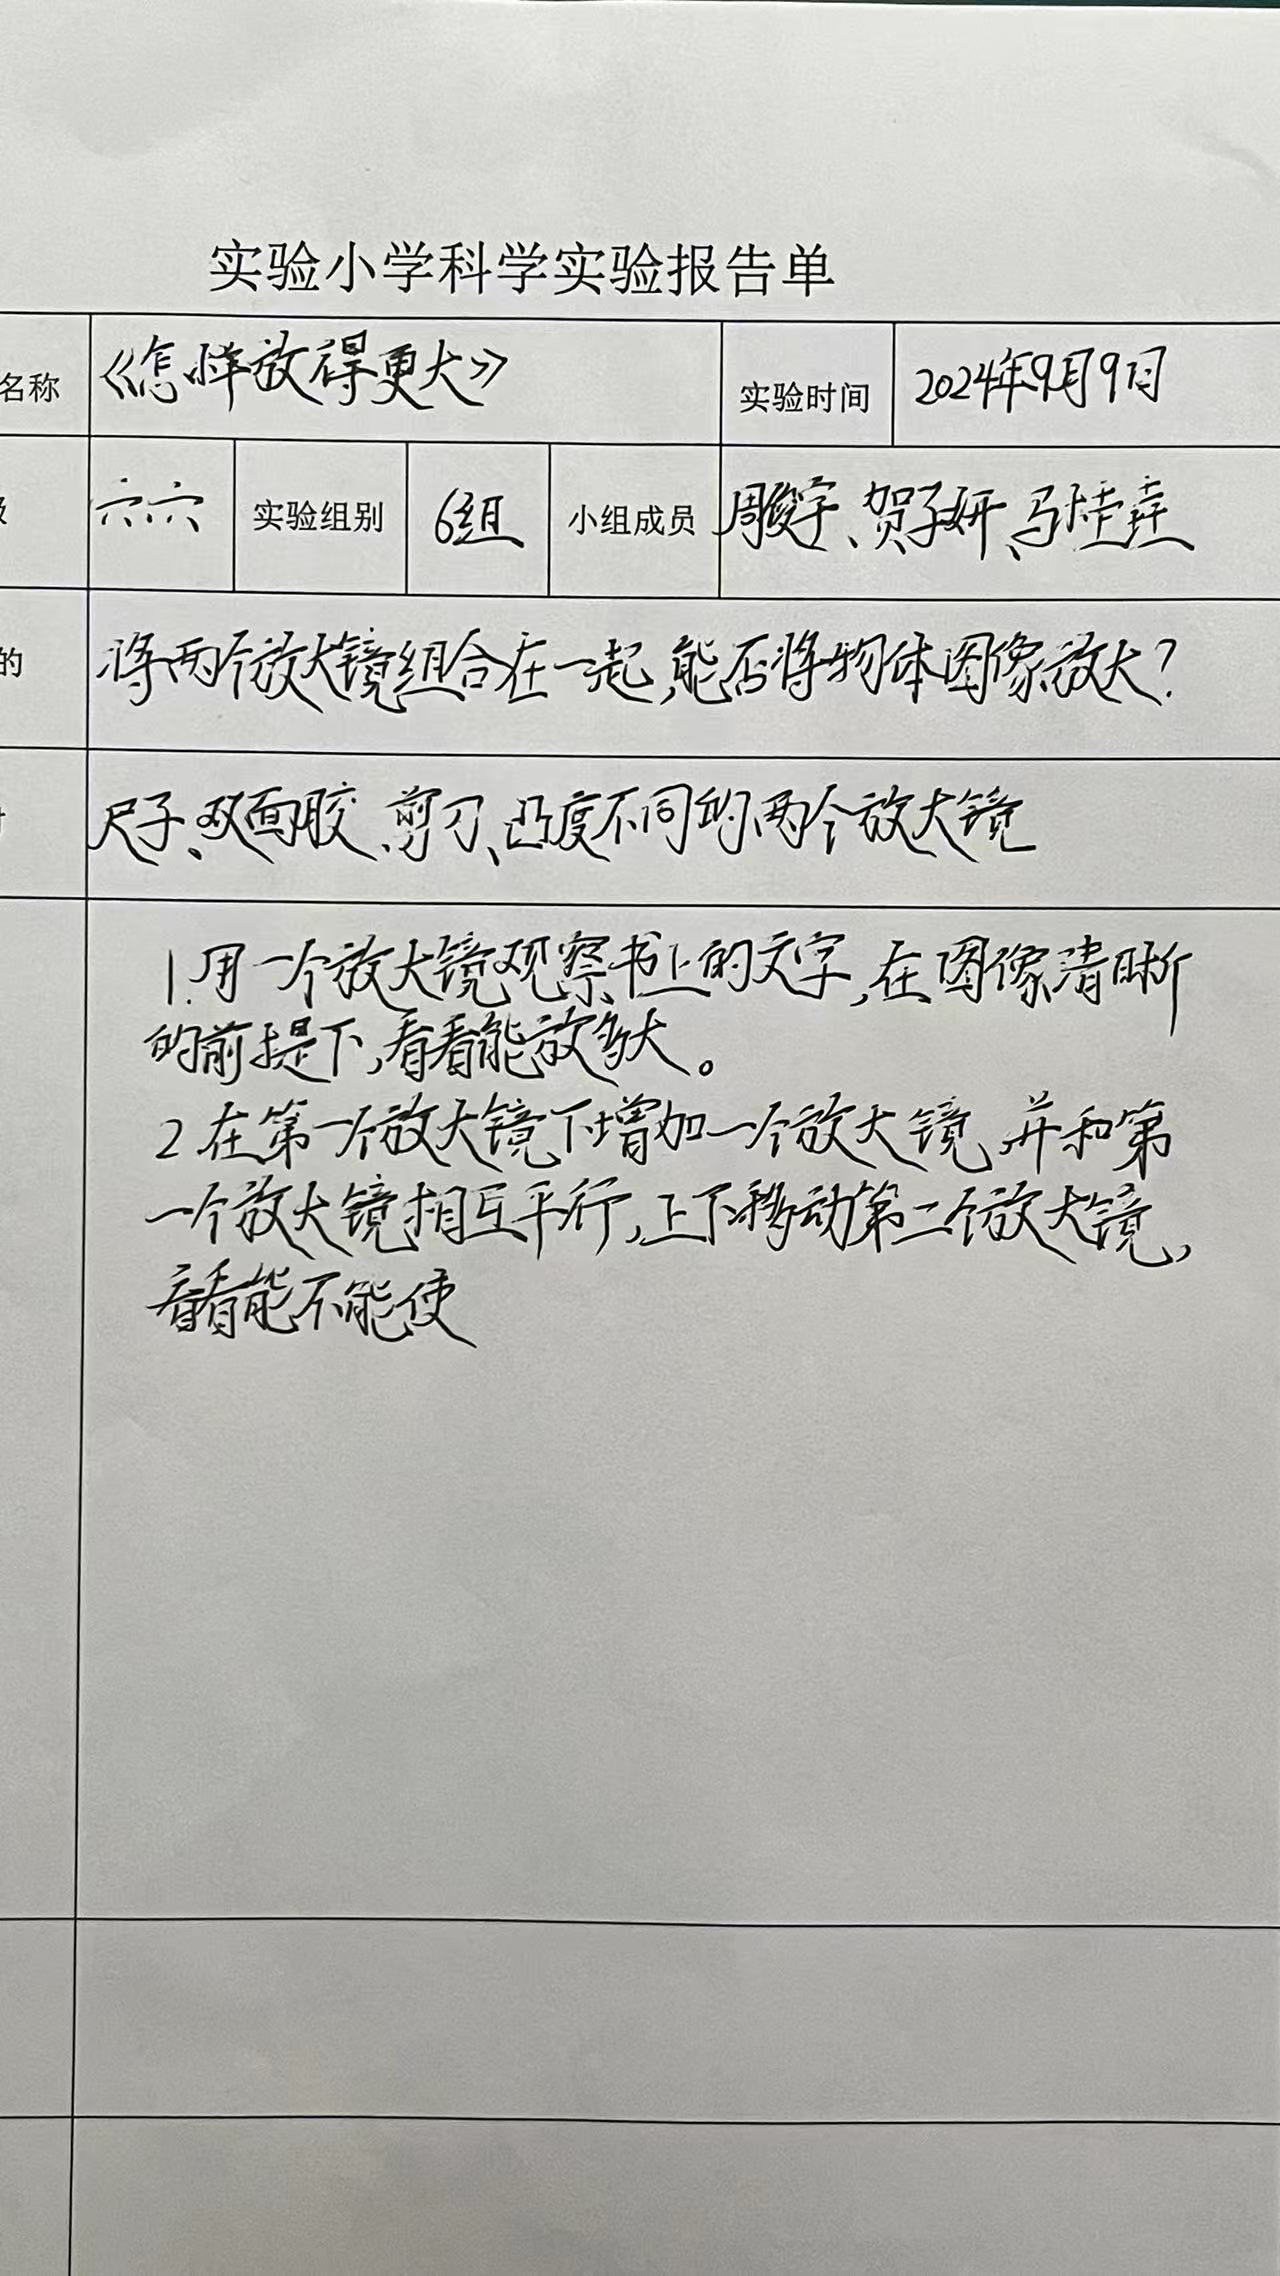 实验小学科学实验报告单
名称 《怎样放得更大》 实验时间 2024年9月9日
级 六六 实验组别 6组 小组成员 周俊宇、贺子妍、马桂垚
的 将两个放大镜组合在一起,能否将物体图像放大?
尺子、双面胶、剪刀、凸度不同的两个放大镜
1.用一个放大镜观察书上的文字,在图像清晰
的前提下,看看能放多大。
2 在第一个放大镜下增加一个放大镜,并和第
一个放大镜相互平行,上下移动第二个放大镜,
看看能不能使